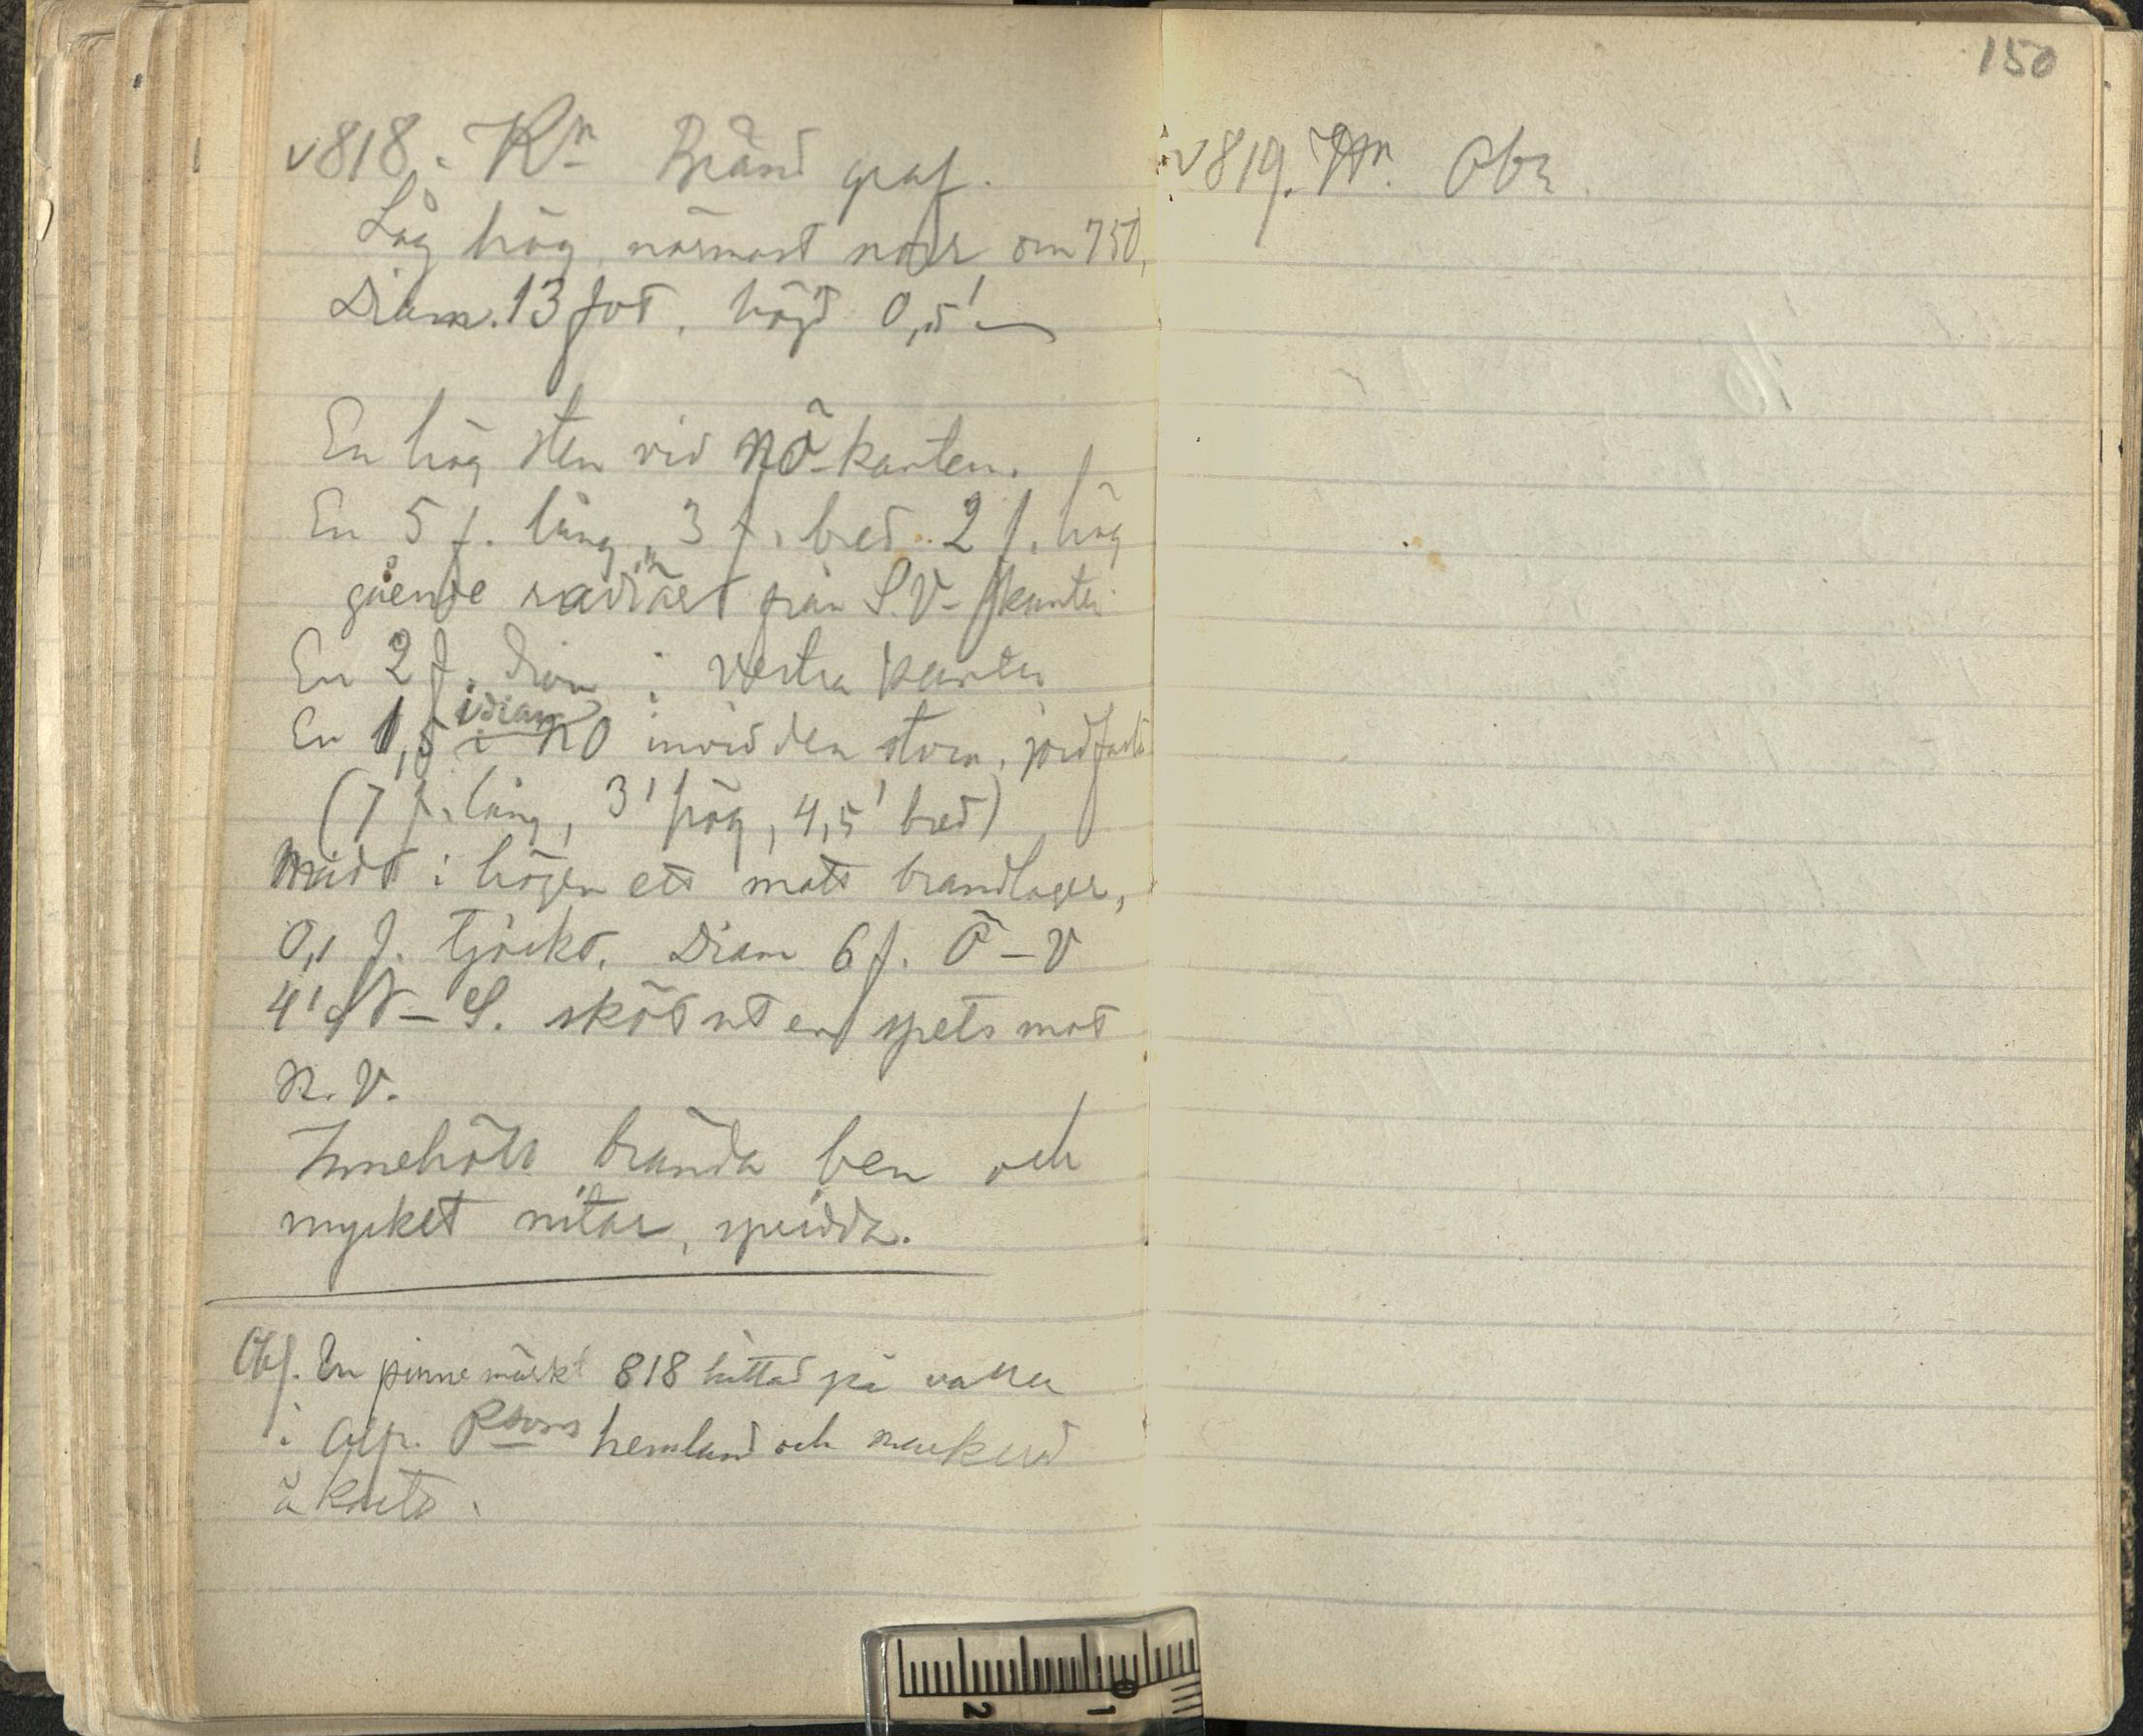 v 818. Kn Bränd graf.
Låg hög närmast norr om 750,
Diam. 13 fot, höjd 0,5'
En hög sten vid NÖ-kanten.
En 5 f. lång, 3 f. bred 2 f. hög
gående radiärt från S.V-kanten
En 2 f. diam i vestra kanten
En 1,5 i diam i NO invid den stora, jordfasta
(7 f. lång, 3' hög, 4,5' bred)
Midt i högen ett matt brandlager,
0,1 f. tjockt. Diam 6 f. Ö-V
4' N-S. sköt ut en spets mot
N.V.
Innehöll brända ben och
mycket nitar, spridda.
Obs. En pinne märkt 818 hittad på vallen
i hemland och markerad
å karta.
150
v 819. Obr.
2
1
0